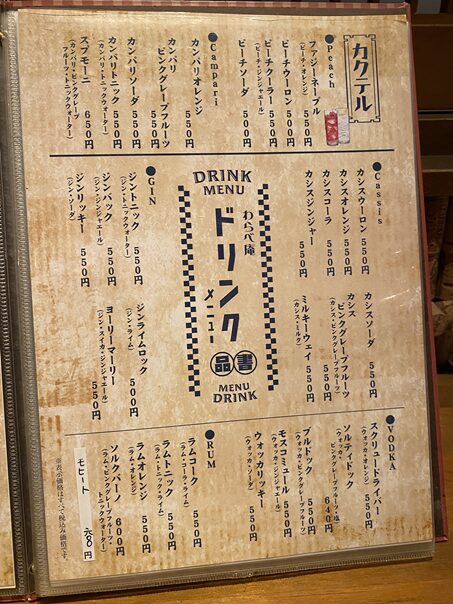 カクテル
●Peach
ファジーネーブル 550円
(ピーチ・オレンジ)
ピーチウーロン 500円
ピーチクーラー 550円
(ピーチ・ジンジャエール)
ピーチソーダ 550円
●Campari
カンパリオレンジ 550円
カンパリ
ピンクグレープフルーツ 550円
カンパリソーダ 550円
カンパリトニック 550円
(カンパリ・トニックウォーター)
スプモーニ 650円
(カンパリ・ピンクグレープ
フルーツ・トニックウォーター)
●Cassis
カシスウーロン 550円
カシスオレンジ 550円
カシスコーラ 550円
カシスジンジャー 550円
カシスソーダ 550円
カシス
ピンクグレープフルーツ 550円
(カシス・ピンクグレープフルーツ)
ミルキーウェイ 550円
(カシス・ミルク)
DRINK
MENU
わらべ庵
ドリンク
メニュー
品書
MENU
DRINK
●GIN
ジントニック 550円
(ジン・トニックウォーター)
ジンバック 550円
(ジン・ジンジャエール)
ジンリッキー 550円
(ジン・ソーダ)
ジンライムロック 500円
(ジン・ライム)
ヨーリーマーリー 550円
(ジン・スイカ・ジンジャエール)
●VODKA
スクリュードライバー 550円
(ウォッカ・オレンジ)
ソルティドック 640円
(ウォッカ・
ピンクグレープフルーツ・塩)
ブルドック 550円
(ウォッカ・
ピンクグレープフルーツ)
モスコミュール 550円
(ウォッカ・ジンジャエール)
ウォッカリッキー 550円
(ウォッカ・ソーダ)
●RUM
ラムコーク 550円
(ラム・コーラ・ライム)
ラム・トニック 550円
(ラム・トニック・ライム)
ラムオレンジ 550円
(ラム・オレンジ)
ソルクバーノ 600円
(ラム・ピンクグレープフルーツ・
トニックウォーター)
モヒート 600円
※表示価格はすべて税込み価格です。